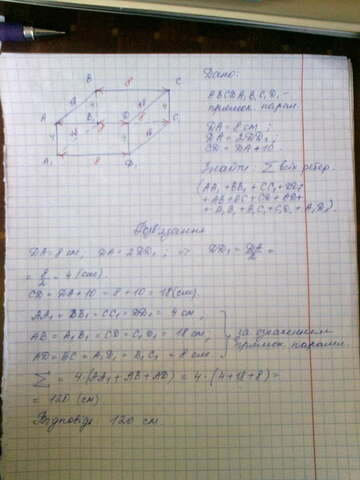 B 8 C
18 4 18 4
A B₁ D C₁
4 18 8 4 18
A₁ 8 D₁
Дано:
ABCDA₁B₁C₁D₁ –
прямок. парал.
DA = 8 см;
DA = 2DD₁;
CD = DA + 10.
Знайти: Σ всіх ребер.
(AA₁ + BB₁ + CC₁ + DD₁
+ AB + BC + CD + AD +
+ A₁B₁ + B₁C₁ + C₁D₁ + A₁D₁)
Розв'язання
DA = 8 см, DA = 2DD₁; DD₁ = DA/2 =
= 8/2 = 4 (см)
CD = DA + 10 = 8 + 10 = 18 (см).
AA₁ = BB₁ = CC₁ = DD₁ = 4 см,
AB = A₁B₁ = CD = C₁D₁ = 18 см, за означенням
AD = BC = A₁D₁ = B₁C₁ = 8 см. прямок. парал.
Σ = 4·(AA₁ + AB + AD) = 4·(4 + 18 + 8) =
= 120 (см)
Відповідь: 120 см.